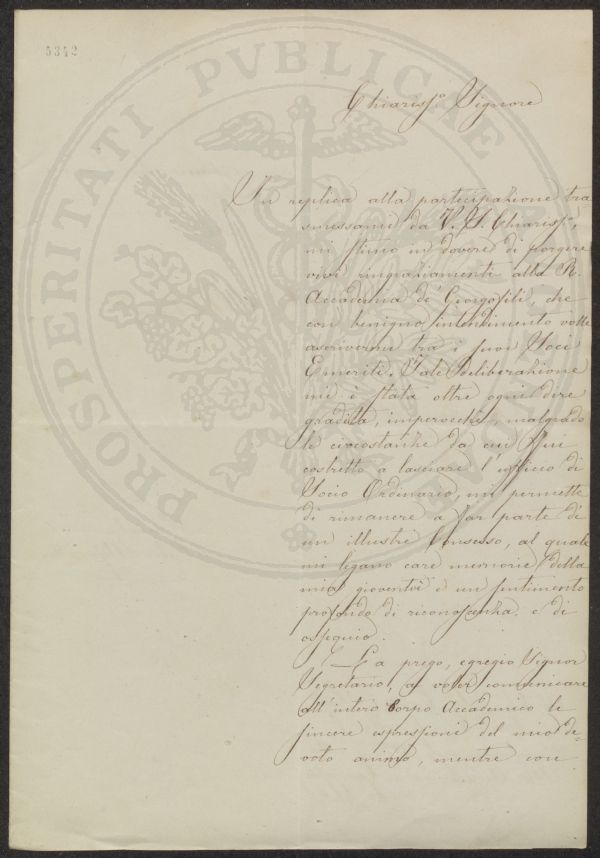 5342
PROSPERITATI PVBLICAE
Chiariss.o Signore
In replica alla partecipazione tra
smessami da V. S. Chiariss.a,
mi stimo in dovere di porgere
vivi ringraziamenti alla R.
Accademia de' Georgofili, che
con benigno intendimento volle
ascrivermi tra i suoi Soci
Emeriti. Tale deliberazione
mi è stata oltre ogni dire
gradita, imperocchè, malgrado
le circostanze da cui fui
costretto a lasciare l'ufficio di
Socio Ordinario, mi permette
di rimanere a far parte di
un illustre Consesso, al quale
mi legano care memorie della
mia gioventù e un sentimento
profondo di riconoscenza e di
ossequio.
La prego, egregio Signor
Segretario, a voler comunicare
all'intero Corpo Accademico le
sincere espressioni del mio de-
voto animo, mentre con